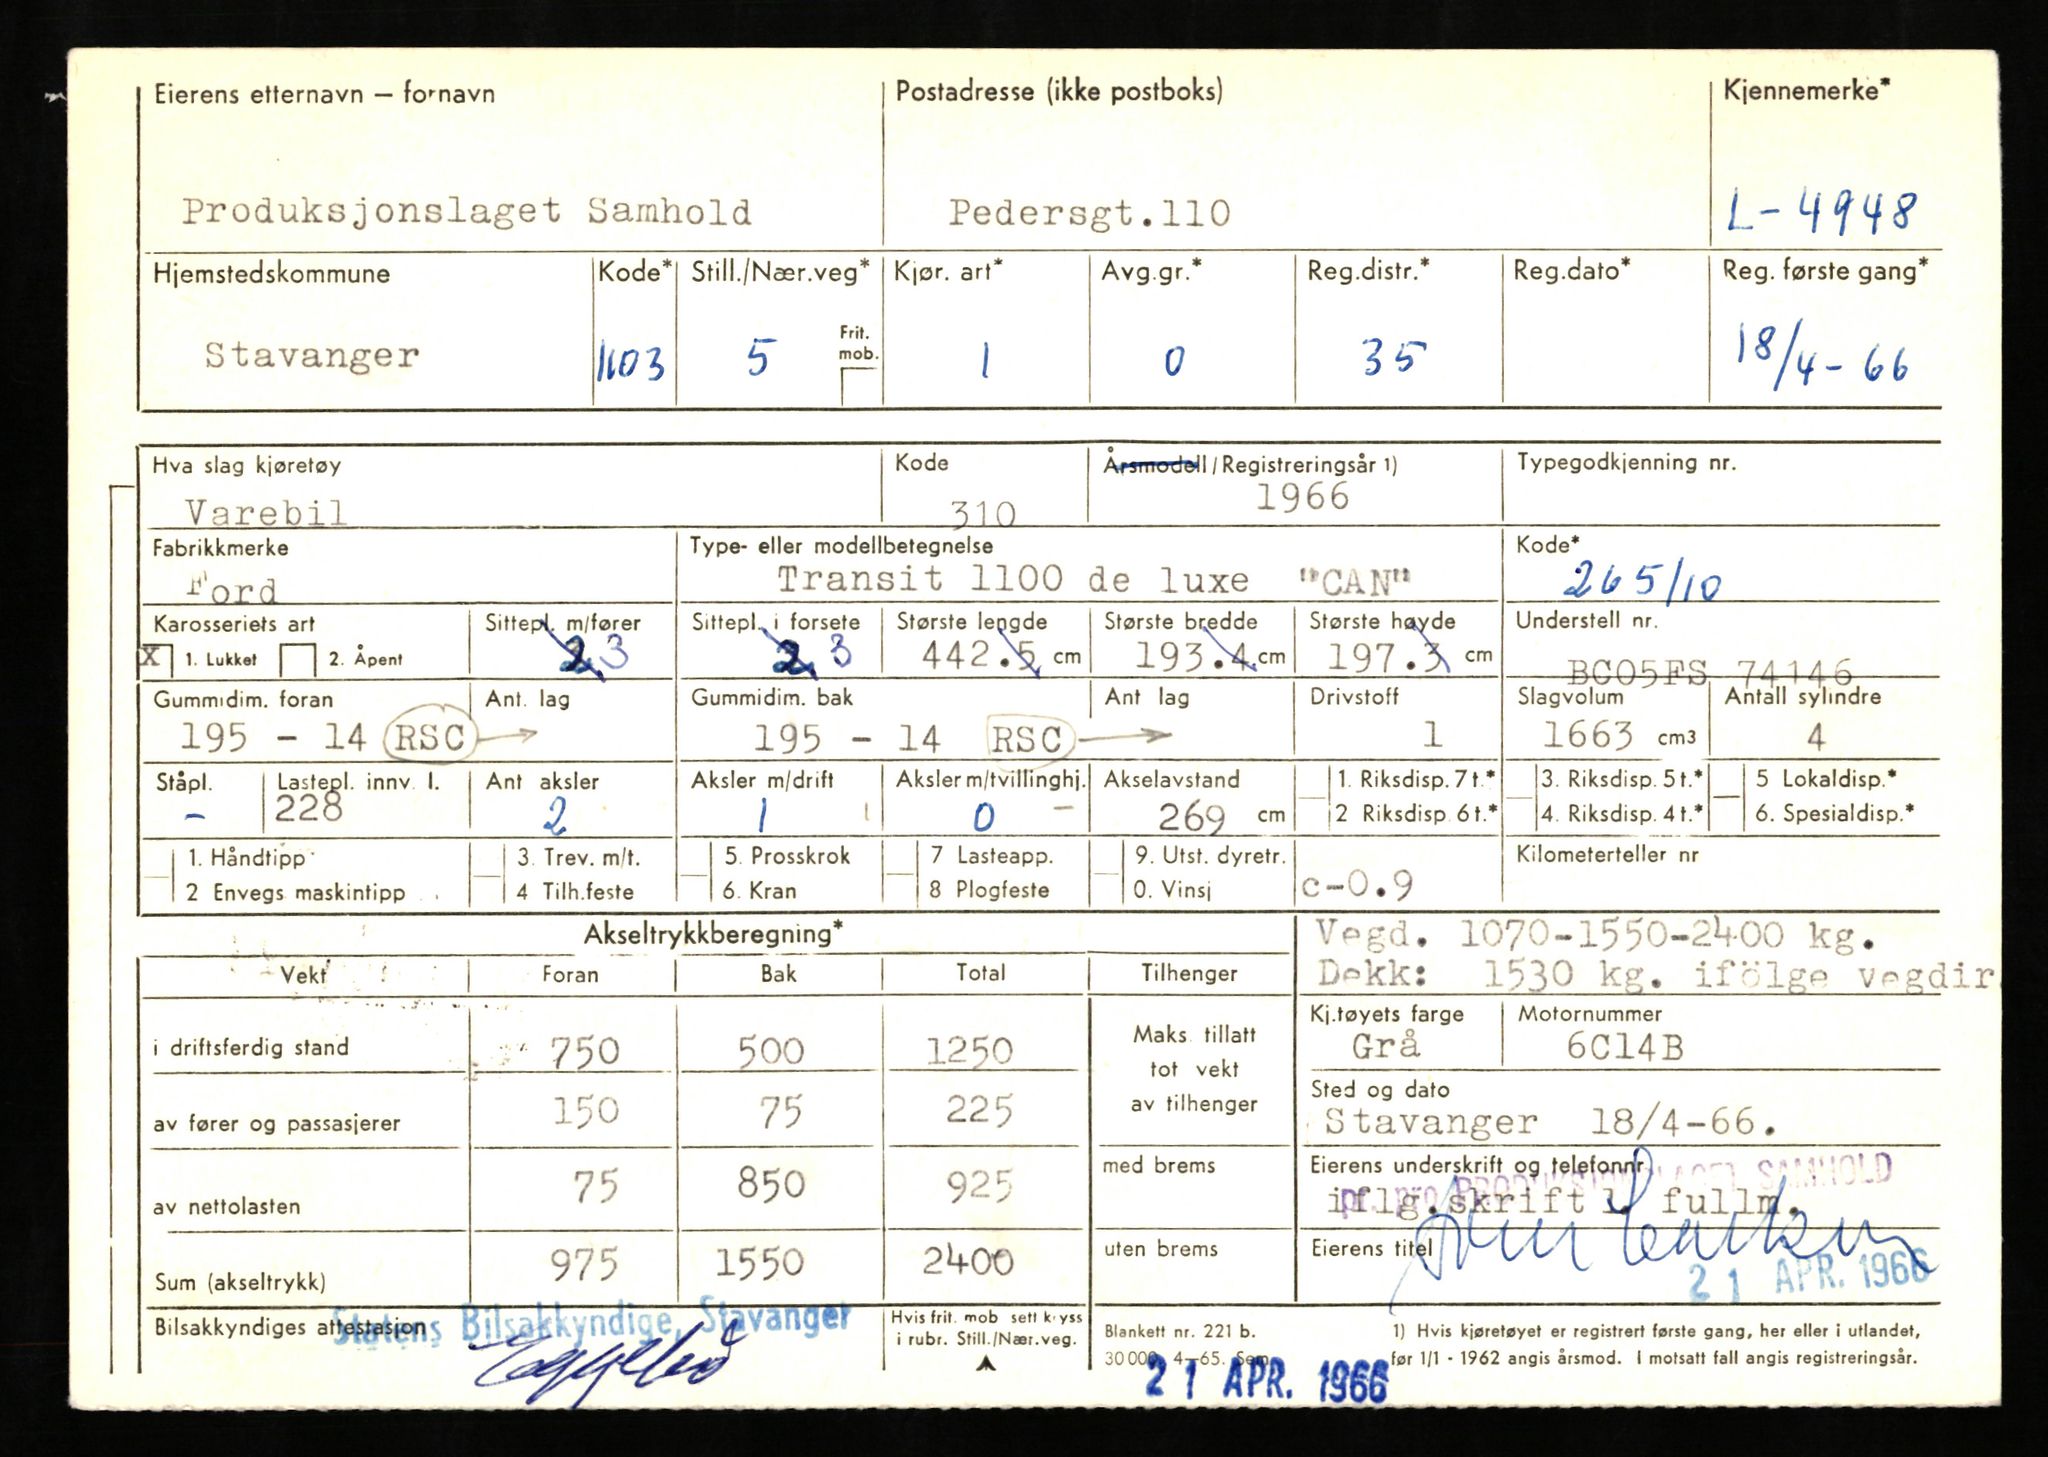 Eierens etternavn — fornavn Postadresse (ikke postboks) Kjennemerke*
Produksjonslaget Samhold Pedersgt.110 L-4948
Hjemstedskommune Kode* Still./Nær.veg* Kjør. art* Avg.gr.* Reg.distr.* Reg.dato* Reg. første gang*
Frit. mob.
Stavanger 1103 5 1 0 35 18/4-66
Hva slag kjøretøy Kode Årsmodell/Registreringsår 1) Typegodkjenning nr.
Varebil 310 1966
Fabrikkmerke Type- eller modellbetegnelse Kode*
Ford Transit 1100 de luxe "CAN" 265/10
Karosseriets art Sittepl. m/fører Sittepl. i forsete Største lengde Største bredde Største høyde Understell nr.
X 1. Lukket 2. Åpent 2 3 2 3 442.5 cm 193.4 cm 197.3 cm BC05FS 74146
Gummidim. foran Ant. lag Gummidim. bak Ant lag Drivstoff Slagvolum Antall sylindre
195 - 14 RSC 195 - 14 RSC 1 1663 cm3 4
Ståpl. Lastepl. innv. l. Ant aksler Aksler m/drift Aksler m/tvillinghj. Akselavstand 1. Riksdisp. 7 t.* 3. Riksdisp. 5 t.* 5 Lokaldisp.*
- 228 2 1 0 - 269 cm 2 Riksdisp. 6 t.* 4. Riksdisp. 4 t.* 6. Spesialdisp.*
1. Håndtipp 3. Trev. m/t. 5. Prosskrok 7 Lasteapp. 9. Utst. dyretr. Kilometerteller nr
2 Envegs maskintipp 4 Tilh.feste 6. Kran 8 Plogfeste 0. Vinsj c-0.9
Akseltrykkberegning* Vegd. 1070-1550-2400 kg.
Vekt Foran Bak Total Tilhenger Dekk: 1530 kg. ifölge vegdir
Kj.tøyets farge Motornummer
i driftsferdig stand 750 500 1250 Maks. tillatt tot vekt av tilhenger Grå 6C14B
Sted og dato
av fører og passasjerer 150 75 225 Stavanger 18/4-66.
med brems Eierens underskrift og telefonnr
SAMHOLD
av nettolasten 75 850 925 iflg.skrift l. fullm.
uten brems Eierens titel
Sum (akseltrykk) 975 1550 2400 21 APR. 1966
Bilsakkyndiges attestasjon Statens Bilsakkyndige, Stavanger
Hvis frit. mob sett kryss
i rubr. Still./Nær.veg.
Blankett nr. 221 b.
30 000. 4-65. Sem
21 APR. 1966
1) Hvis kjøretøyet er registrert første gang, her eller i utlandet,
før 1/1 - 1962 angis årsmod. I motsatt fall angis registreringsår.